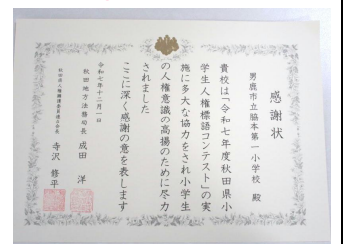 感謝状
男鹿市立脇本第一小学校 殿
貴校は「令和七年度秋田県小
学生人権標語コンテスト」の実
施に多大な協力をされ小学生
の人権意識の高揚のために尽力
されました
ここに深く感謝の意を表します
令和七年十二月一日
秋田地方法務局長 成田 洋
秋田県人権擁護委員連合会長 寺沢 修平